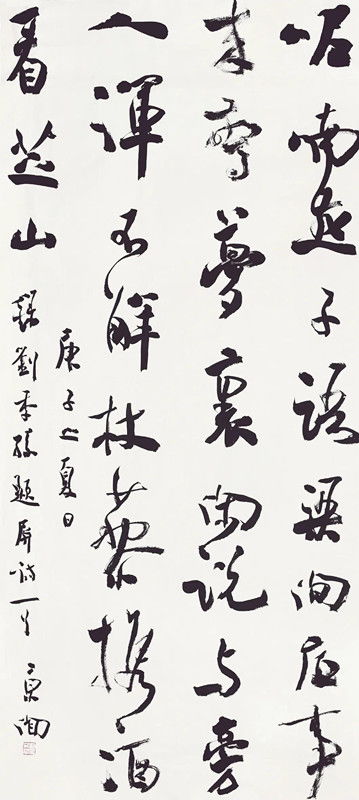 呢喃燕子語梁間底事
來驚夢裏閑說与旁
人渾不解杖藜携酒
看芝山
庚子之夏日
錄劉季孫題屏詩一首